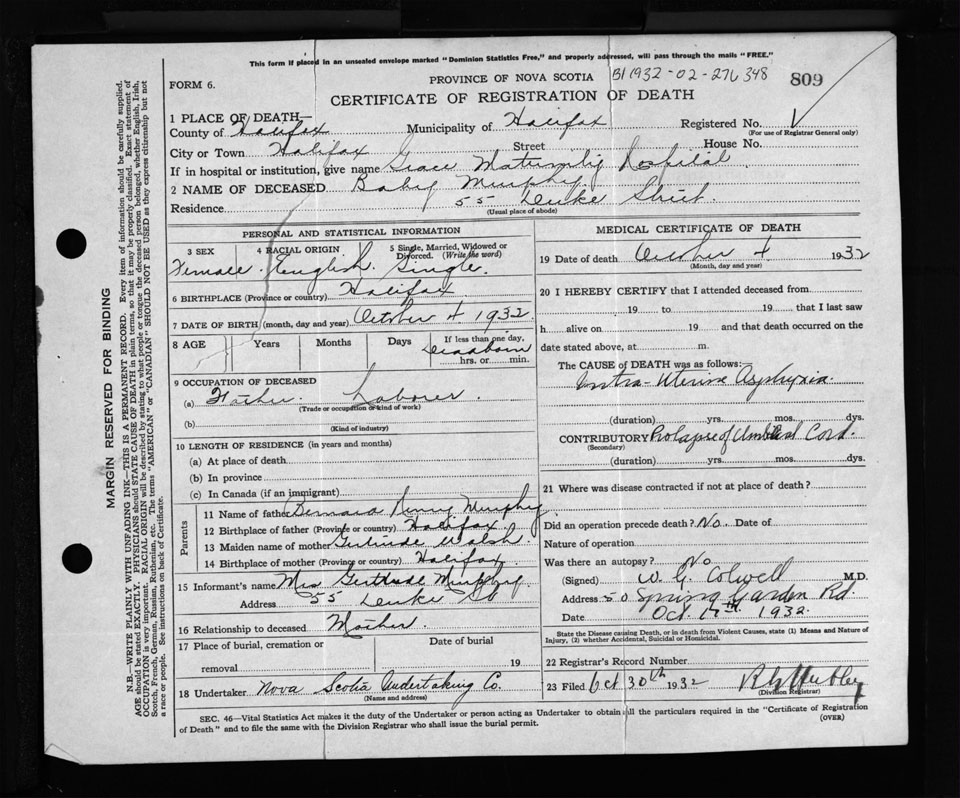 This form if placed in an unsealed envelope marked "Dominion Statistics Free," and properly addressed, will pass through the mails "FREE."
FORM 6.
PROVINCE OF NOVA SCOTIA
B1932-02-276348
809
CERTIFICATE OF REGISTRATION OF DEATH
1 PLACE OF DEATH—
County of Halifax Municipality of Halifax Registered No.
(For use of Registrar General only)
City or Town Halifax Street House No.
If in hospital or institution, give name Grace Maternity Hospital
2 NAME OF DECEASED Baby Murphy
Residence 55 Street
(Usual place of abode)
PERSONAL AND STATISTICAL INFORMATION
3 SEX 4 RACIAL ORIGIN 5 Single, Married, Widowed or Divorced. (Write the word)
Female. English. Single.
6 BIRTHPLACE (Province or country) Halifax
7 DATE OF BIRTH (month, day and year) October 4 1932
8 AGE Years Months Days If less than one day,
Deadborn
hrs. or min.
9 OCCUPATION OF DECEASED
(a) Father. Laborer.
(Trade or occupation or kind of work)
(b)
(Kind of industry)
10 LENGTH OF RESIDENCE (in years and months)
(a) At place of death
(b) In province
(c) In Canada (if an immigrant)
Parents
11 Name of father Bernard Henry Murphy
12 Birthplace of father (Province or country) Halifax
13 Maiden name of mother Gertrude Walsh
14 Birthplace of mother (Province or country) Halifax
15 Informant's name Mrs Gertrude Murphy
Address 55 St
16 Relationship to deceased Mother.
17 Place of burial, cremation or removal Date of burial 19
18 Undertaker Nova Scotia Undertaking Co.
(Name and address)
MEDICAL CERTIFICATE OF DEATH
19 Date of death October 4 1932
(Month, day and year)
20 I HEREBY CERTIFY that I attended deceased from
19 to 19 that I last saw
h alive on 19 and that death occurred on
date stated above, at m.
The CAUSE OF DEATH was as follows:
Intra-Uterine Asphyxia.
(duration) yrs. mos. dys.
CONTRIBUTORY Prolapse of Umbilical Cord.
(Secondary)
(duration) yrs. mos. dys.
21 Where was disease contracted if not at place of death?
Did an operation precede death? No. Date of
Nature of operation
Was there an autopsy? No
(Signed) W. G. Colwell M.D.
Address 50 Spring Garden Rd.
Date Oct. 17th 1932.
State the Disease causing Death, or in death from Violent Causes, state (1) Means and Nature of Injury, (2) whether Accidental, Suicidal or Homicidal.
22 Registrar's Record Number
23 Filed Oct 30th 1932
(Division Registrar)
SEC. 46—Vital Statistics Act makes it the duty of the Undertaker or person acting as Undertaker to obtain all the particulars required in the "Certificate of Registration of Death" and to file the same with the Division Registrar who shall issue the burial permit.
(OVER)
MARGIN RESERVED FOR BINDING
N.B.—WRITE PLAINLY WITH UNFADING INK—THIS IS A PERMANENT RECORD. Every item of information should be carefully supplied.
AGE should be stated EXACTLY. PHYSICIANS should STATE CAUSE OF DEATH in plain terms, so that it may be properly classified. Exact statement of
OCCUPATION is very important. RACIAL ORIGIN will be described by stating to what people or tongue the deceased person belonged, whether English, Irish,
Scotch, French, German, Russian, Ruthenian, etc. The terms "AMERICAN" or "CANADIAN" SHOULD NOT BE USED as they express citizenship but not
a race or people. See instructions on back of Certificate.